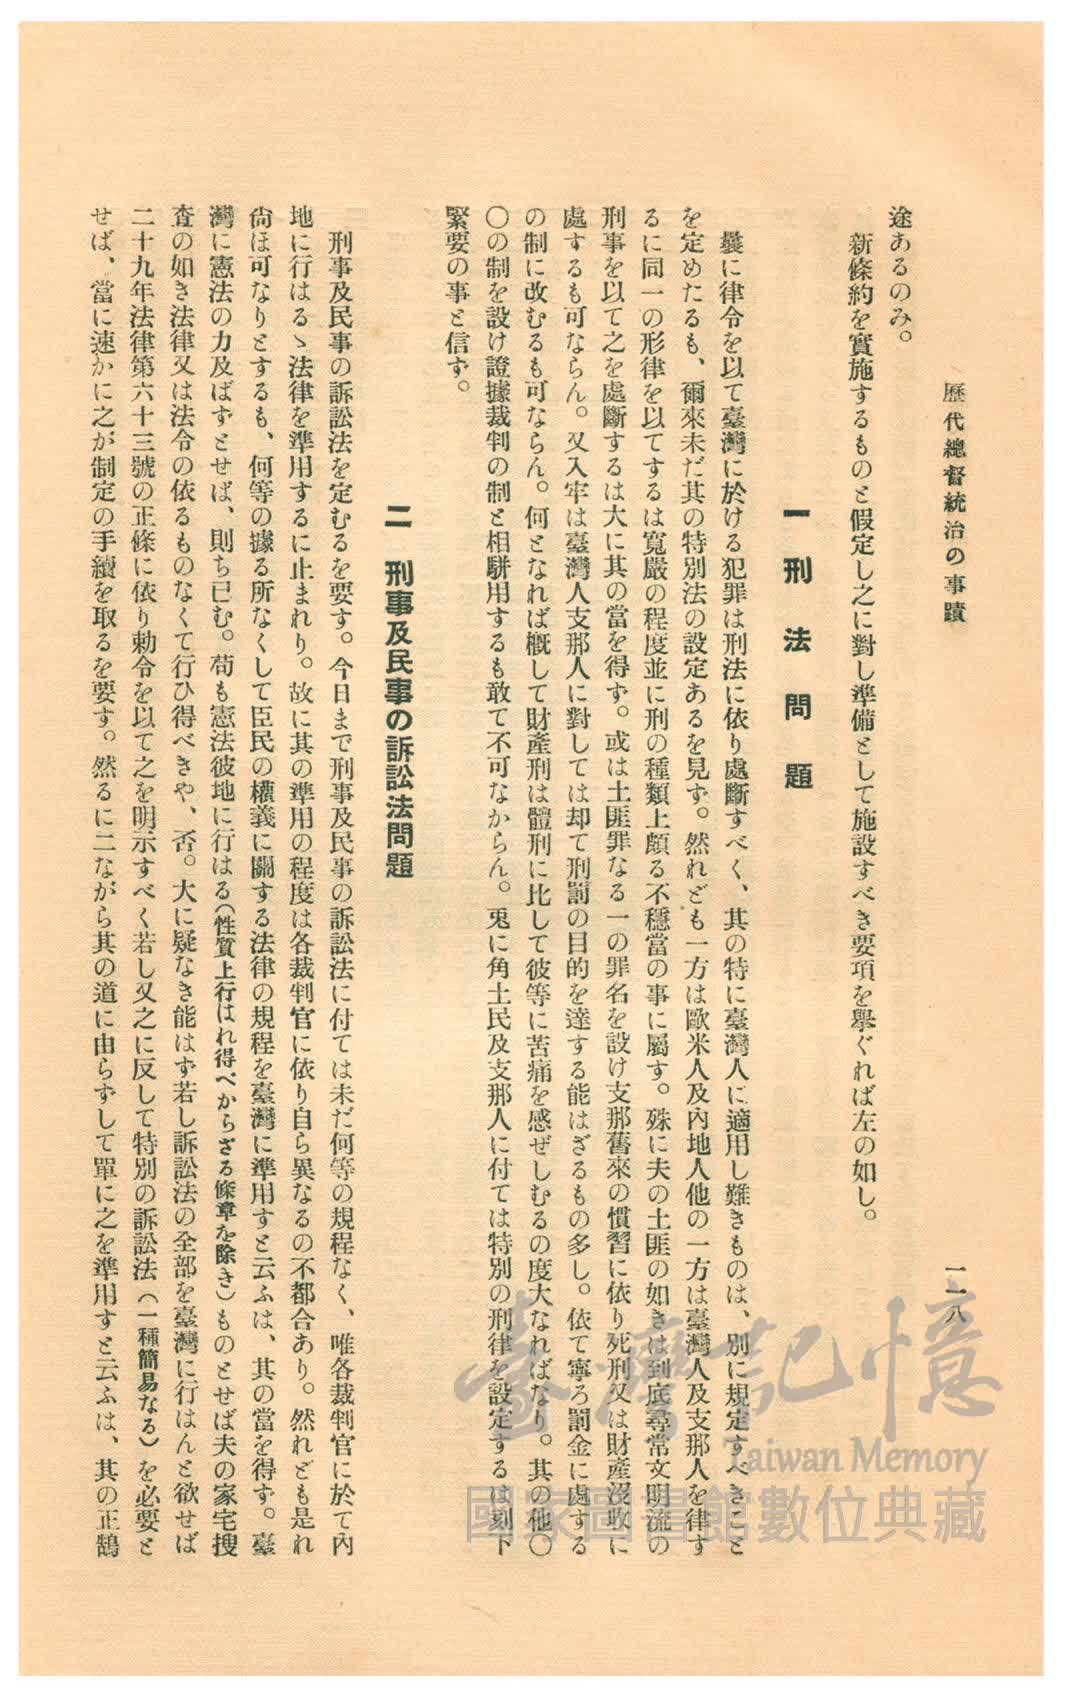 歷代總督統治の事蹟
一一八
途あるのみ。
新條約を實施するものと假定し之に對し準備として施設すべき要項を擧ぐれば左の如し。
一 刑法問題
曩に律令を以て臺灣に於ける犯罪は刑法に依り處斷すべく、其の特に臺灣人に適用し難きものは、別に規定すべきこと
を定めたるも、爾來未だ其の特別法の設定あるを見ず。然れども一方は歐米人及內地人他の一方は臺灣人及支那人を律す
るに同一の形律を以てするは寬嚴の程度並に刑の種類上頗る不穩當の事に屬す。殊に夫の土匪の如きは到底尋常文明流の
刑事を以て之を處斷するは大に其の當を得ず。或は土匪罪なる一の罪名を設け支那舊來の慣習に依り死刑又は財產沒收に
處するも可ならん。又入牢は臺灣人支那人に對しては却て刑罰の目的を達する能はざるもの多し。依て寧ろ罰金に處する
の制に改むるも可ならん。何となれば槪して財產刑は體刑に比して彼等に苦痛を感ぜしむるの度大なればなり。其の他〇
〇の制を設け證據裁判の制と相騈用するも敢て不可なからん。兎に角土民及支那人に付ては特別の刑律を設定するは刻下
緊要の事と信ず。
二 刑事及民事の訴訟法問題
刑事及民事の訴訟法を定むるを要す。今日まで刑事及民事の訴訟法に付ては未だ何等の規程なく、唯各裁判官に於て內
地に行はるゝ法律を準用するに止まれり。故に其の準用の程度は各裁判官に依り自ら異なるの不都合あり。然れども是れ
尙ほ可なりとするも、何等の據る所なくして臣民の權義に關する法律の規程を臺灣に準用すと云ふは、其の當を得ず。臺
灣に憲法の力及ばずとせば、則ち已む。苟も憲法彼地に行はる(性質上行はれ得べからざる條章を除き)ものとせば夫の家宅搜
査の如き法律又は法令の依るものなくて行ひ得べきや、否。大に疑なき能はず若し訴訟法の全部を臺灣に行はんと欲せば
二十九年法律第六十三號の正條に依り勅令を以て之を明示すべく若し又之に反して特別の訴訟法(一種簡易なる)を必要と
せば、當に速かに之が制定の手續を取るを要す。然るに二ながら其の道に由らずして單に之を準用すと云ふは、其の正鵠
臺灣記憶
Taiwan Memory
國家圖書館數位典藏